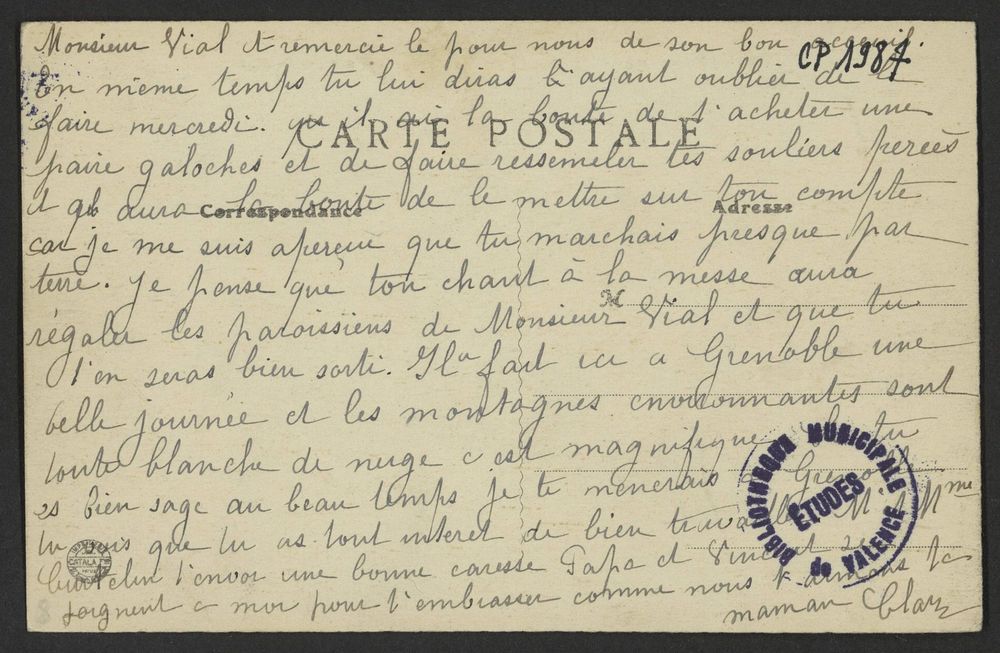 Monsieur Vial et remercie le pour nous de son bon accueil.
CP 1987
En même temps tu lui diras l'ayant oublier de le
faire mercredi. qu'il ai la bonté de t'acheter une
CARTE POSTALE
paire galoches et de faire ressemeler tes souliers percés
et qu'b aura la bonté de le mettre sur ton compte
Correspondance
Adresse
car je me suis aperçue que tu marchais presque par
terre. Je pense que ton chant à la messe aura
M
régaler les paroissiens de Monsieur Vial et que tu
t'en seras bien sorti. Il a fait ici a Grenoble une
belle journée et les montagnes environnantes sont
toute blanche de neige c'est magnifique tu
es bien sage au beau temps je te menerais a Grenoble
tu que tu as tout interet de bien M. & Mme
t'envoi une bonne caresse Papa et Vincent se
joignent a moi pour t'embrasser comme nous t'aimons ta
maman
BIBLIOTHEQUE MUNICIPALE
ETUDES
de VALENCE
CATALA
8